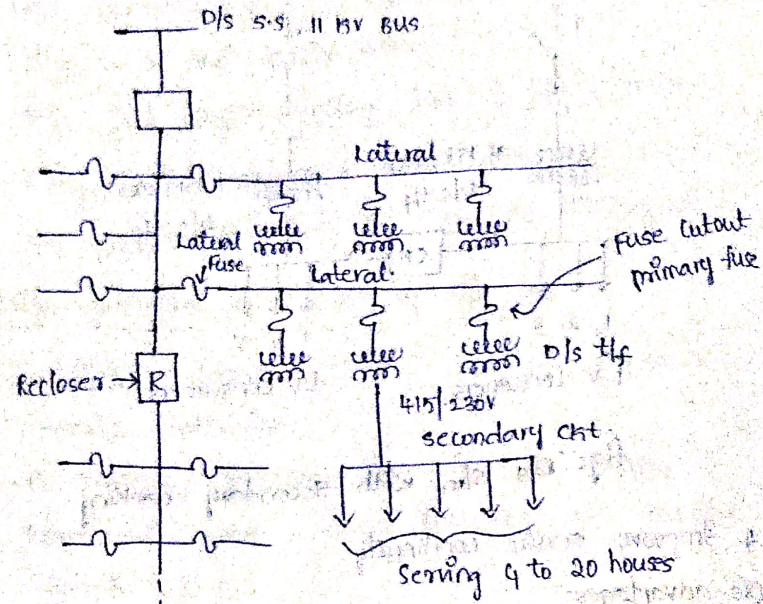 D/s s.s, 11 kV BUS
Lateral
Lateral
Fuse
Lateral.
Fuse Cutout
primary fuse
D/s t/f
Recloser
R
415/230V
secondary ckt.
Serving 4 to 20 houses